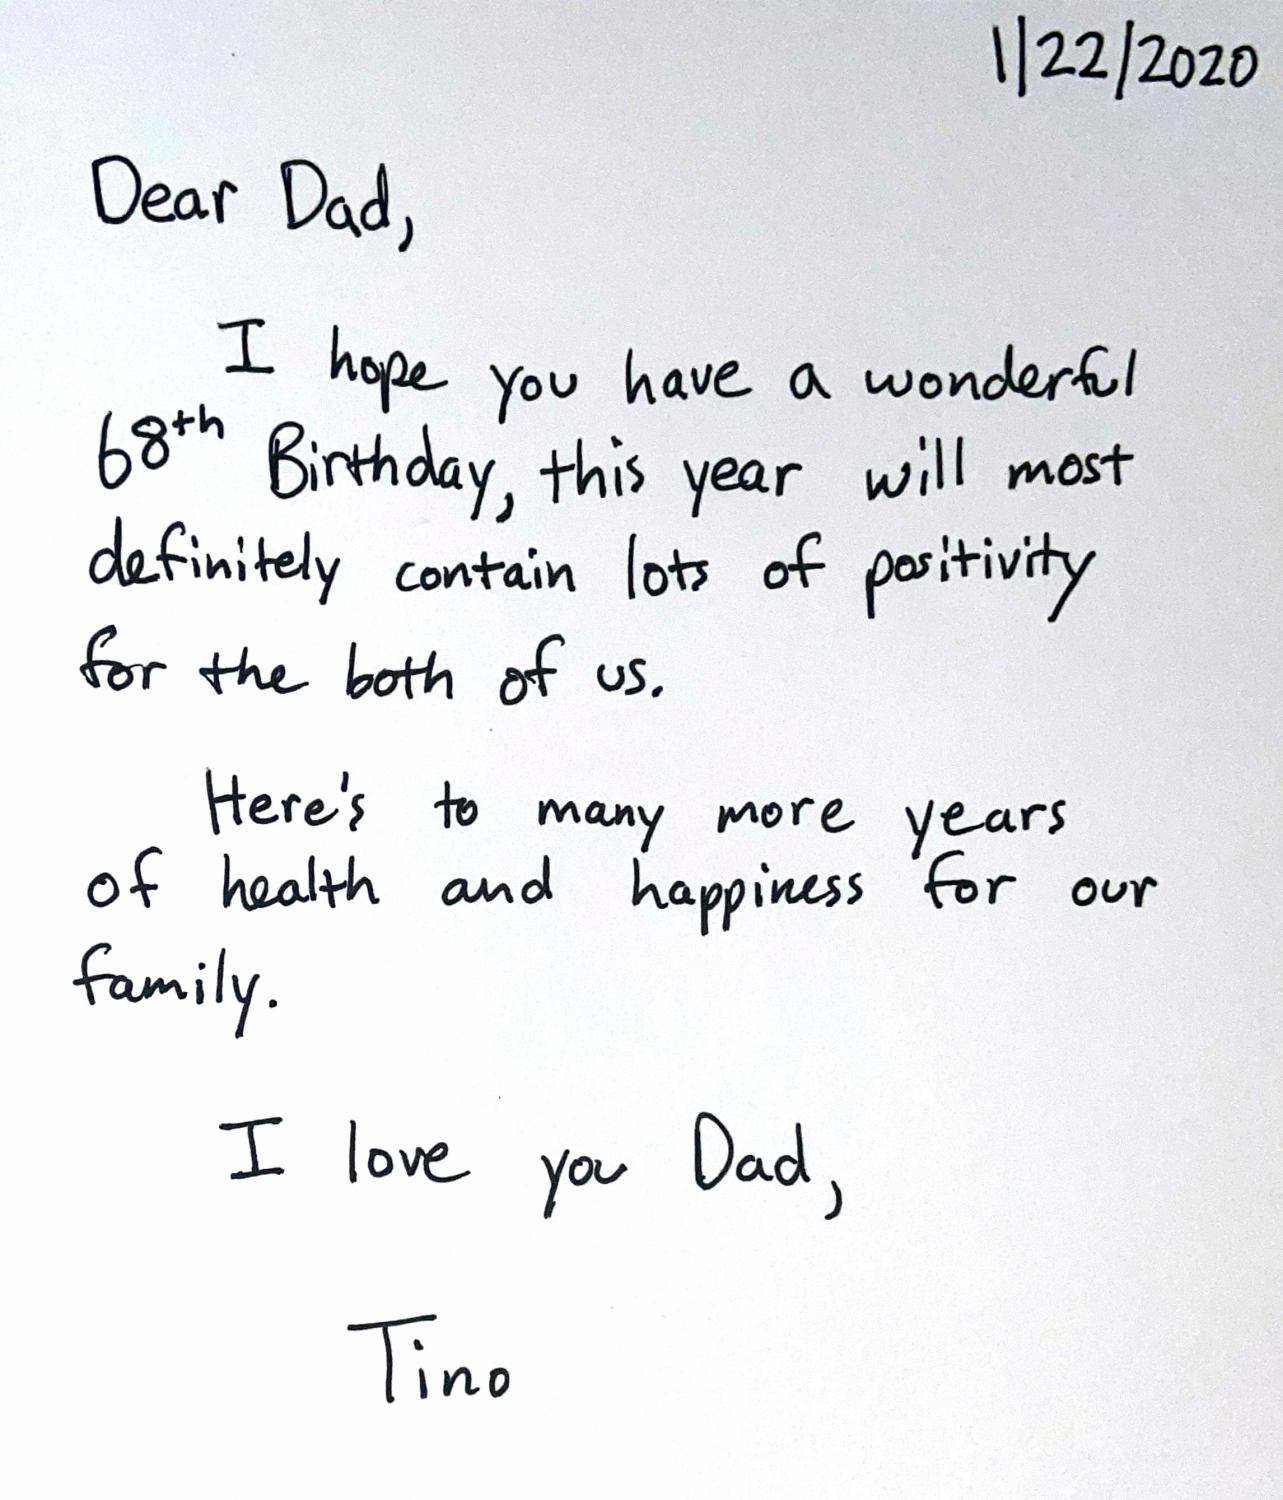 1/22/2020
Dear Dad,
I hope you have a wonderful
68th Birthday, this year will most
definitely contain lots of positivity
for the both of us.
Here's to many more years
of health and happiness for our
family.
I love you Dad,
Tino